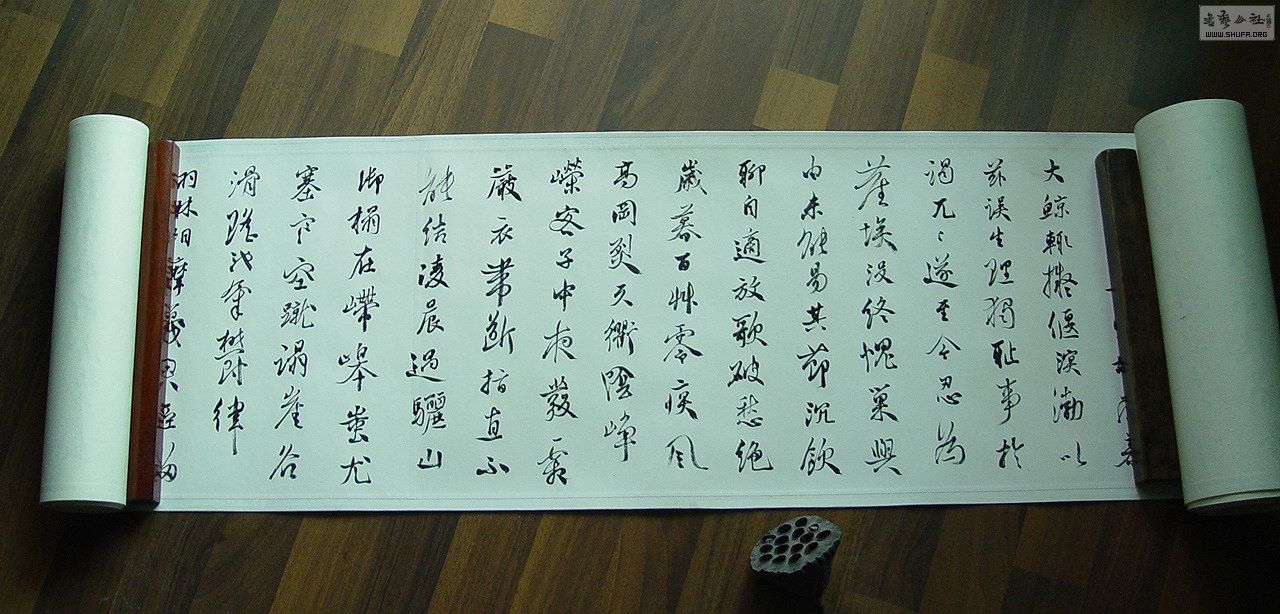 慕
大鯨輒擬偃溟渤以
茲誤生理獨耻事於
謁兀々遂至今忍為
塵埃沒終愧巢與
由未能易其節沉飲
聊自適放歌破愁絕
歲暮百艸零疾風
高岡裂天衢陰崢
嶸客子中夜發霜
嚴衣帶斷指直不
能結凌晨過驪山
御榻在嵽嵲蚩尤
塞寒空蹴蹋崖谷
滑瑤池氣鬱律
羽林相摩戛
書藝公社
WWW.SHUFA.ORG